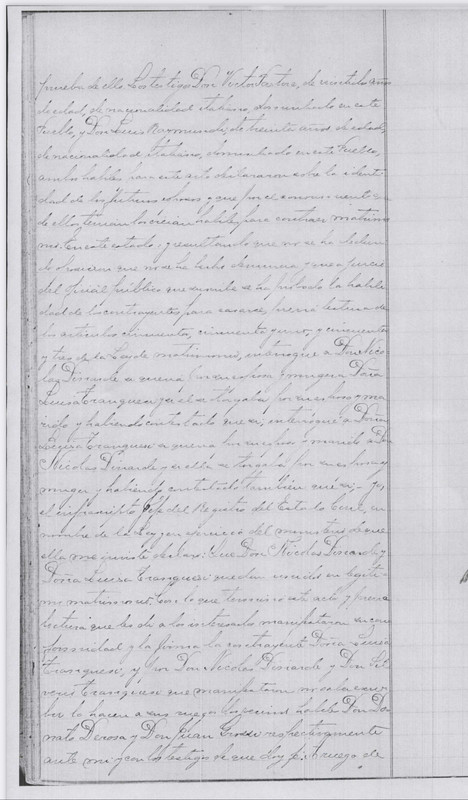 prueba de ello los testigos Don Victor Fortore, de veintidos años
de edad, de nacionalidad italiano, domiciliado en este
Pueblo, y Don Luis Raymundo, de treinta años de edad,
de nacionalidad Italiano, domiciliado en este Pueblo,
ambos habiles para este acto declararon sobre la identi-
dad de los futuros esposos y que por el conocimiento que
de ellos tenian los creian habiles para contraer matrimo
nio en este estado; y resultando que no se ha deduci
do oposicion que no se ha hecho denuncia y que a juicio
del oficial público que suscribe se ha probado la habili
dad de los contrayentes para casarse, previa lectura de
los articulos cincuenta, cincuenta y uno, y cincuenta
y tres de la Ley de matrimonio, interrogué a Don Nico
las Disiarde si queria por su esposa y muger a Doña
Luisa Tranquesi y a el se otorgaba por su esposo y ma
rido y habiendo contestado que si; interogué a Doña
Luisa Tranquesi si queria por su esposo y marido a Don
Nicolas Disiarde y si ella se otorgaba por su esposa y
muger y habiendo contestado tambien que si; Yo,
el infrascrito Jefe del Registro del Estado Civil, en
nombre de la Ley y en ejercicio del ministerio de que
ella me inviste declaro: que Don Nicolas Disiarde y
Doña Luisa Tranquesi quedan unidos en legiti-
mo matrimonio, con lo que terminó este acto y previa
lectura que les di a los interesados manifestaron su con
formidad y la firma la contrayente Doña Luisa
Tranquesi, y por Don Nicolas Disiarde y Don
Tranquesi que manifestaron no saberlo
lo hacen a sus ruegos los vecinos habiles Don Do
nato Derosa y Don Juan Grosso respectivamente
ante mi y con los testigos de que doy fe. A ruego de